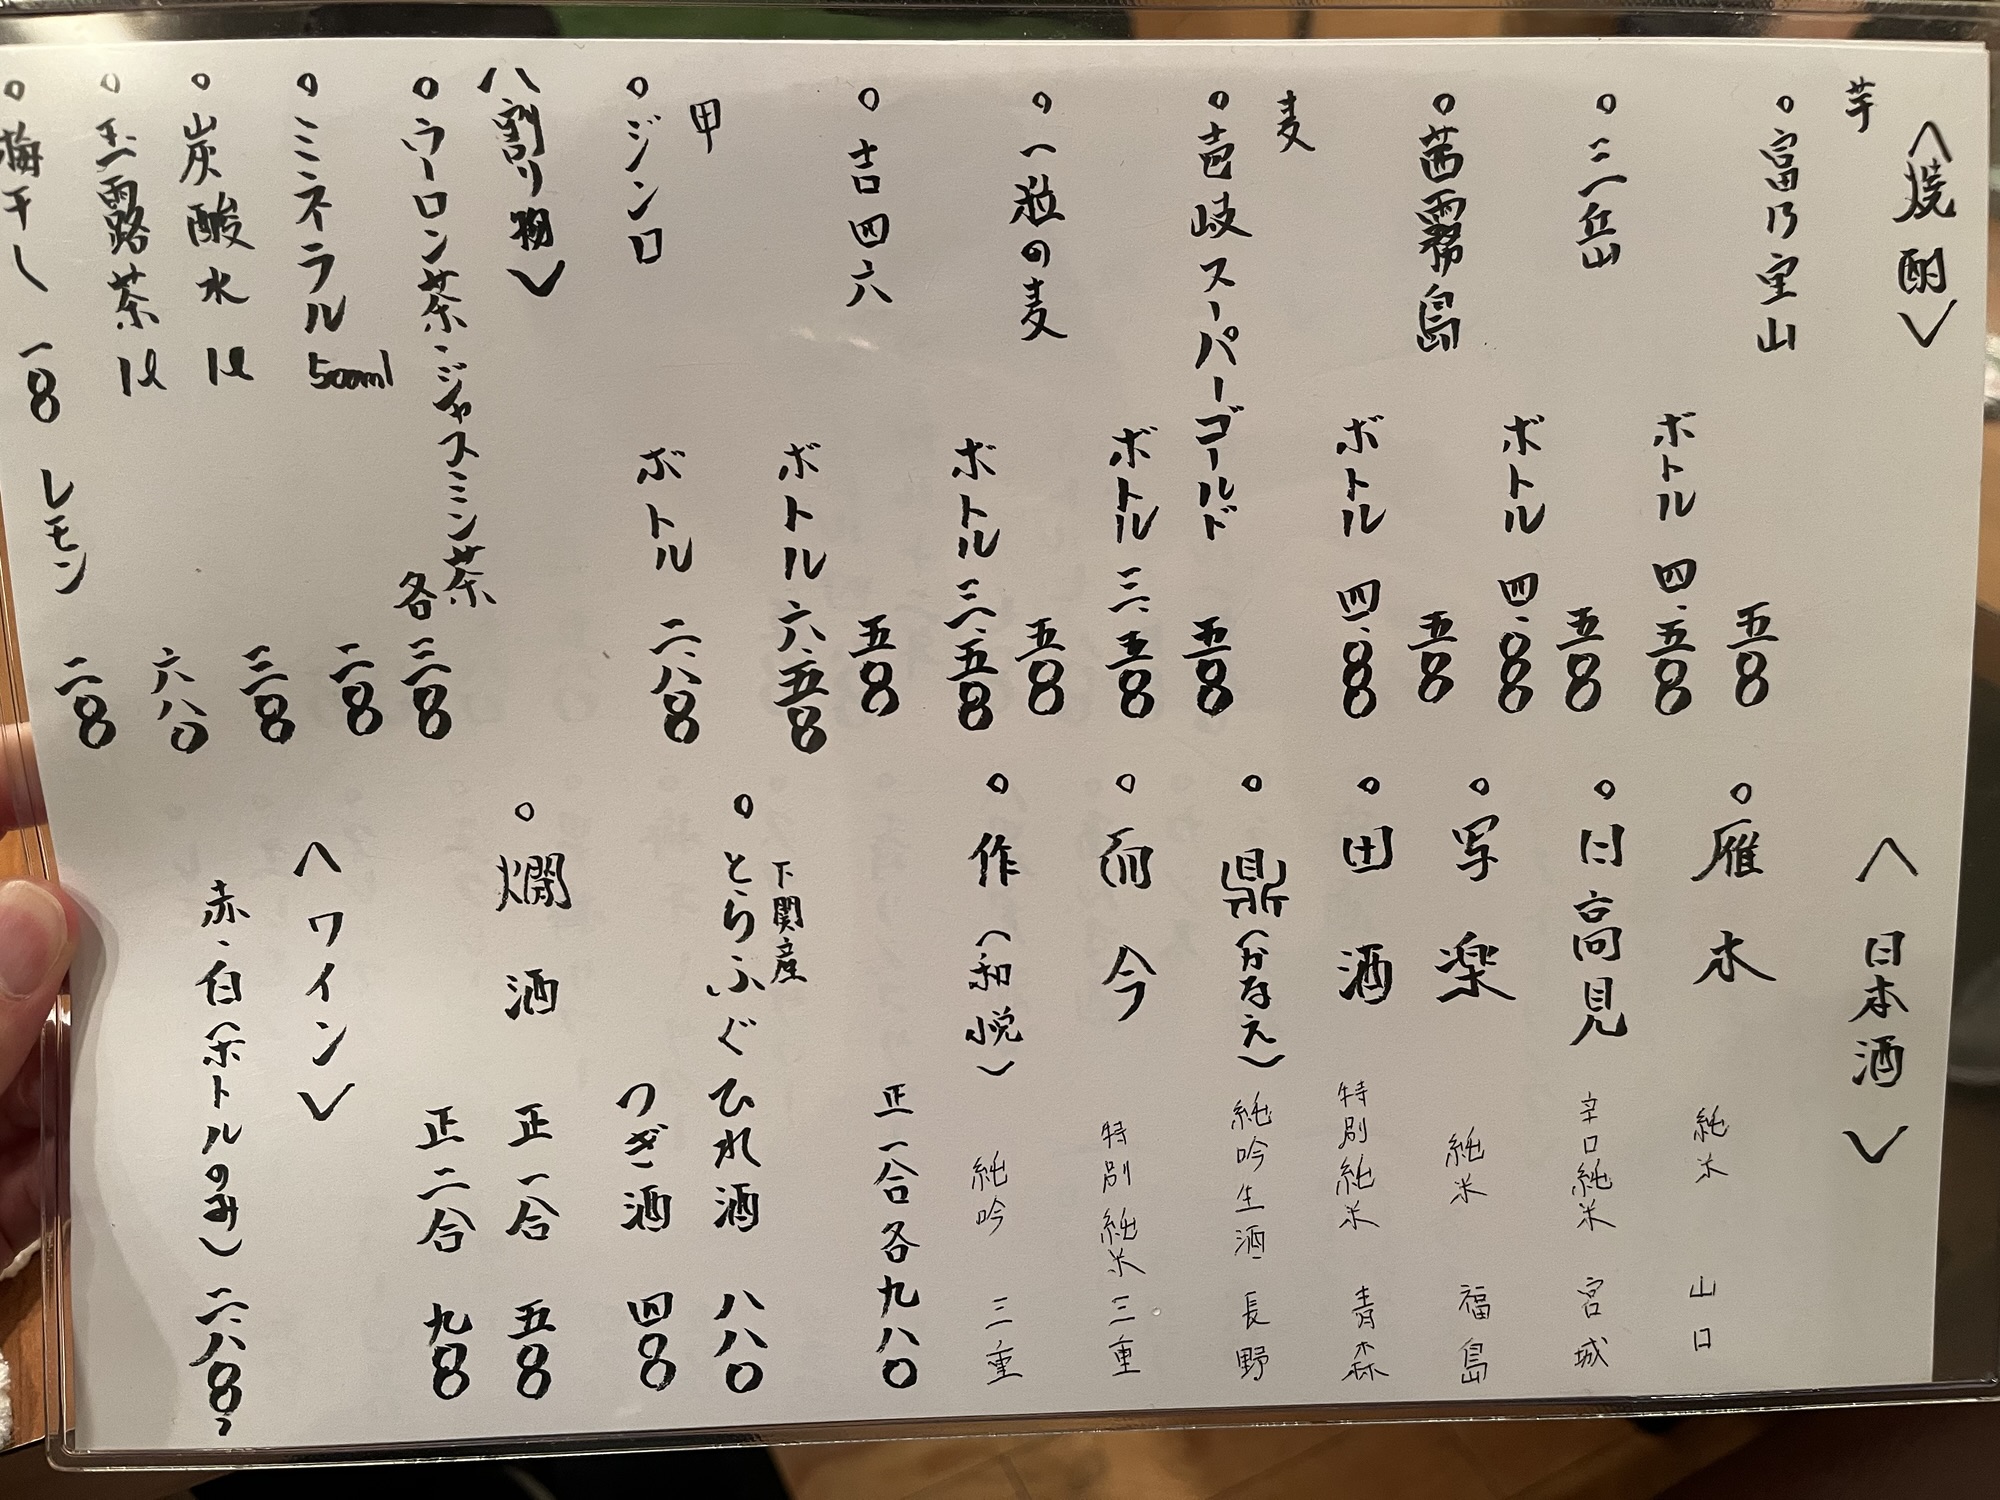 〈焼酎〉
芋
○富乃宝山 五〇〇
ボトル 四、五〇〇
○三岳 五〇〇
ボトル 四、〇〇〇
○茜霧島 五〇〇
ボトル 四、〇〇〇
麦
○壱岐スーパーゴールド 五〇〇
ボトル 三、五〇〇
○一粒の麦 五〇〇
ボトル 三、五〇〇
○吉四六 五〇〇
ボトル 六、五〇〇
甲
○ジンロ
ボトル 二、八〇〇
〈割り物〉
○ウーロン茶・ジャスミン茶 各三〇〇
○ミネラル 500ml 二〇〇
○炭酸水 1ℓ 三〇〇
○玉露茶 1ℓ 六八〇
○梅干し 一〇〇 レモン 二〇〇
〈日本酒〉
○雁木 純米 山口
○日高見 辛口純米 宮城
○写楽 純米 福島
○田酒 特別純米 青森
○鼎(かなえ) 純吟生酒 長野
○而今 特別純米 三重
○作(和悦) 純吟 三重
正一合各九八〇
下関産
○とらふぐひれ酒 八八〇
つぎ酒 四〇〇
○燗酒 正一合 五〇〇
正二合 九〇〇
〈ワイン〉
赤・白(ボトルのみ) 二、八〇〇